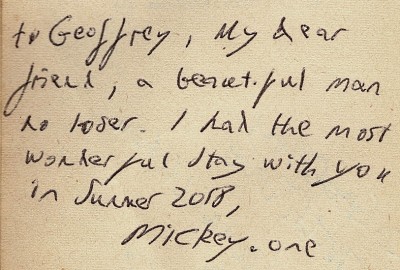 to Geoffrey, my dear
friend, a beautiful man
no loser. I had the most
wonderful stay with you
in Summer 2008,
Mickey. one